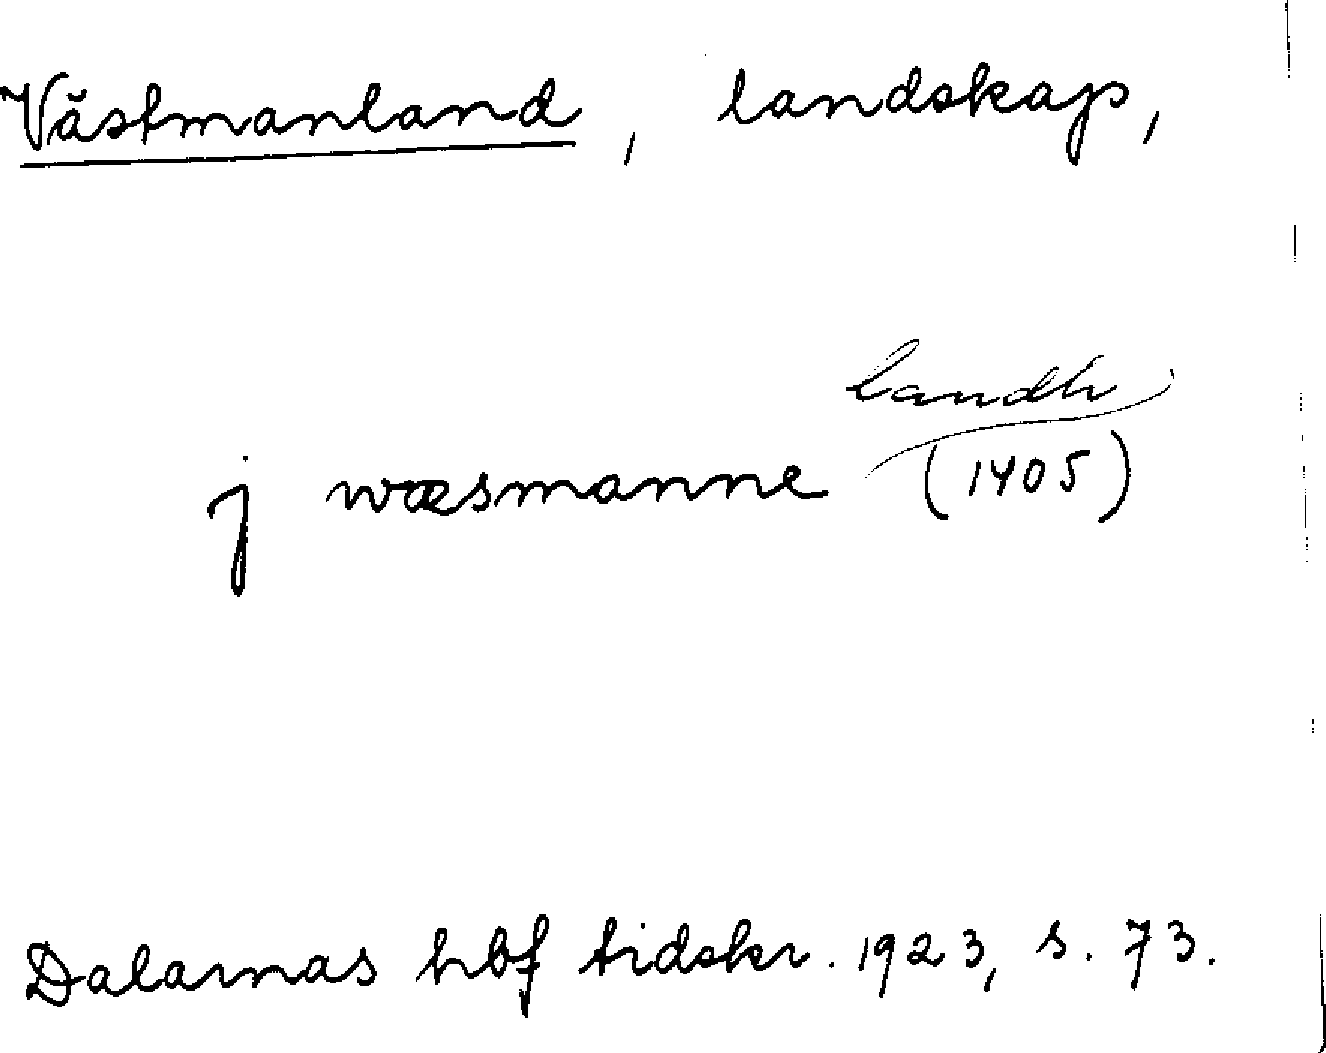 Västmanland, landskap,
j wæsmanne landh (1405)
Dalarnas hbf tidskr. 1923, s. 73.